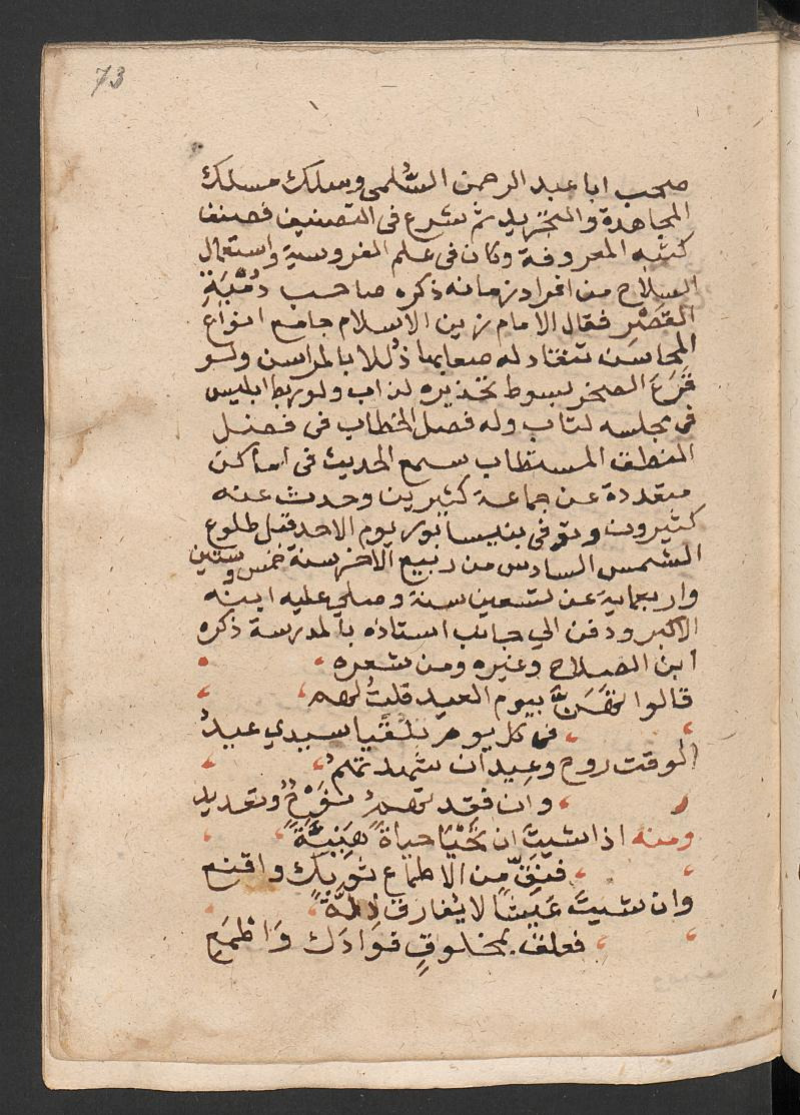 73
صحب ابا عبد الرحمن السُّلمى وسلك مسلك
المجاهدة والتجريد ثم شرع فى التصنيف فصنف
كتبه المعروفة وكان فى علم الفروسية واستعمال
السلاح من افراد زمانه ذكره صاحب دُمْيَةِ
القَصْرِ فقال الامام زين الاسلام جامع انواع
المحاسن تنقاد له صعابها ذُللا بالمراسن ولو
قَرَعَ الصخر بسوط تحذيره لذاب ولو ربط ابليس
فى مجلسه لتاب وله فصل الخطاب فى فضل
المنطق المستطاب سمع الحديث فى اماكن
متعددة عن جماعة كثيرين وحدث عنه
كثيرون وتوفى بنيسابور يوم الاحد قبل طلوع
الشمس السادس من ربيع الاخر سنة خمس وستين
واربعماية عن تسعين سنة وصلى عليه ابنه
الاكبر ودفن الي جانب استاذه بالمدرسة ذكره
ابن الصلاح وغيره ومن شعره
قالوا تَهَنَّ بيوم العيد قلتُ لهم
فى كل يوم بلقيا سيدي عيدُ
الوقت روح وعيد ان شهدتهمُ
وان فقدتهمُ نَوْحٌ وتعديد
ومنه اذا شيتَ ان تَحْيَا حياةً هَنِيَّةً
فنَقِّ من الاطماع ثوبك واقنع
وان شيتَ عَيْشًا لا يفارق ذِلَّةً
فعلق بمخلوقٍ فوادَك وَاطْمَعِ